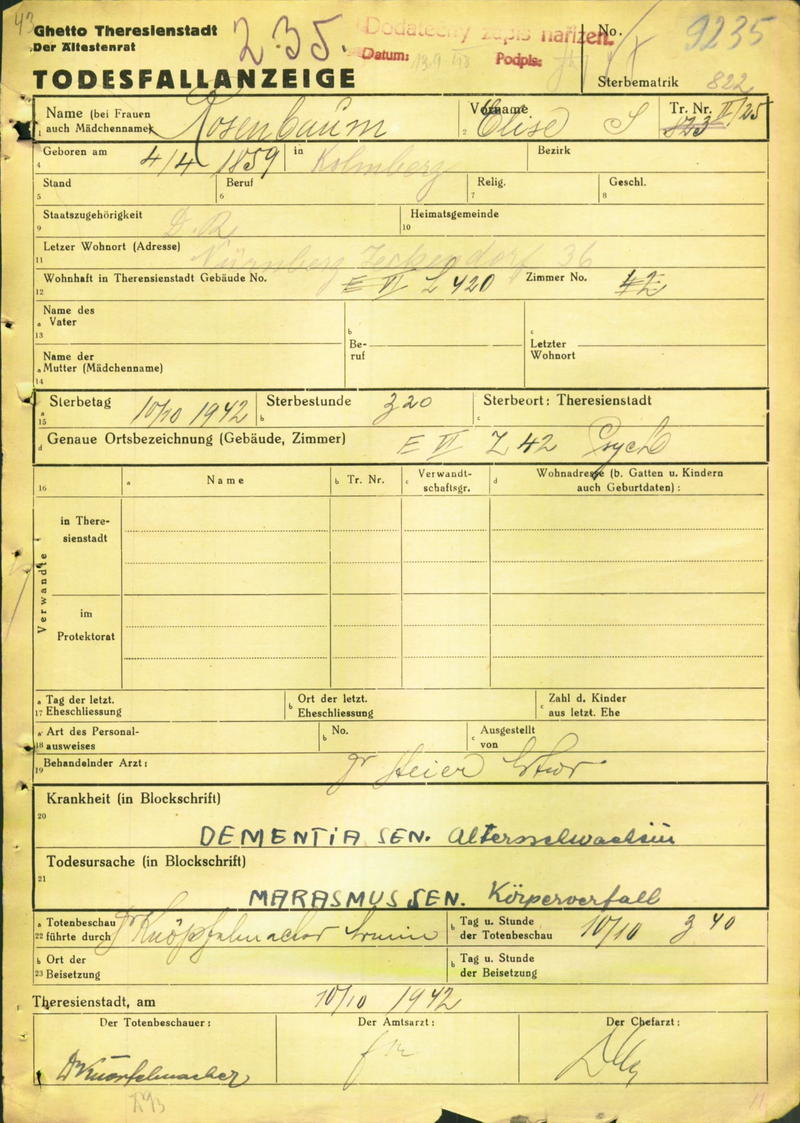 43
Ghetto Theresienstadt
Der Ältestenrat
TODESFALLANZEIGE
235.
Dodatečný zápis nařízen.
Datum: Podpis:
No. 9235
Sterbematrik 822
Name (bei Frauen auch Mädchenname) Rosenbaum
1
Vorname Elise S
2
Tr. Nr. II/25
823
Geboren am 4/4 1859 in Kolmberg Bezirk
4
Stand Beruf Relig. Geschl.
5 6 7 8
Staatszugehörigkeit D.R. Heimatsgemeinde
9 10
Letzer Wohnort (Adresse)
11 Nürnberg 36
Wohnhaft in Therensienstadt Gebäude No. E VI Z 420 Zimmer No. 42
12
Name des
a Vater
13
b Be-
ruf
c Letzter
Wohnort
Name der
a Mutter (Mädchenname)
14
a Sterbetag 10/10 1942 b Sterbestunde 3 20 c Sterbeort: Theresienstadt
15
d Genaue Ortsbezeichnung (Gebäude, Zimmer) E VI Z 42 Psych
16 a Name b Tr. Nr. c Verwandt-
schaftsgr. d Wohnadresse (b. Gatten u. Kindern
auch Geburtdaten):
Verwandte
in There-
sienstadt
im
Protektorat
a Tag der letzt.
17 Eheschliessung
b Ort der letzt.
Eheschliessung
c Zahl d. Kinder
aus letzt. Ehe
a Art des Personal-
18 ausweises
b No.
c Ausgestellt
von
Behandelnder Arzt:
19
Krankheit (in Blockschrift)
20
DEMENTIA SEN. Altersschwachsinn
Todesursache (in Blockschrift)
21
MARASMUS SEN. Körperverfall
a Totenbeschau
22 führte durch Dr Knöpfelmacher
b Tag u. Stunde
der Totenbeschau 10/10 3 40
a Ort der
23 Beisetzung
b Tag u. Stunde
der Beisetzung
Theresienstadt, am 10/10 1942
Der Totenbeschauer: Der Amtsarzt: Der Chefarzt:
Dr Knöpfelmacher